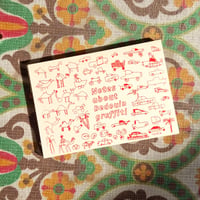 Notes
about
Bedouin
graffiti